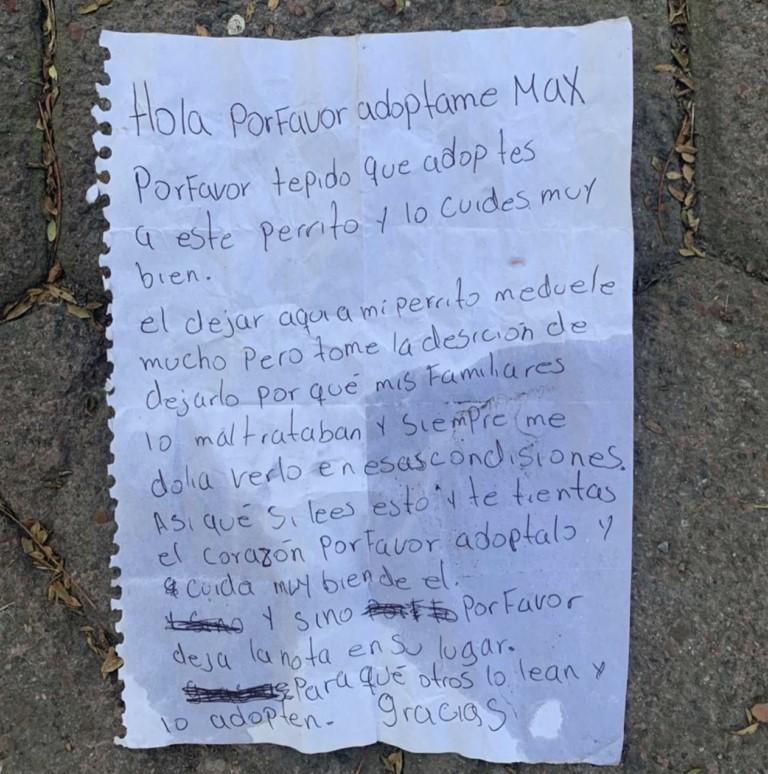 Hola PorFavor adoptame Max
PorFavor tepido que adoptes
a este perrito y lo cuides muy
bien.
el dejar aqui a mi perrito meduele
mucho pero tome la desicion de
dejarlo por qué mis Familiares
lo maltrataban y siempre me
dolia verlo en esas condisiones.
Asi qué si lees esto y te tientas
el corazón PorFavor adoptalo y
cuida muy bien de el.
y sino PorFavor
deja la nota en su lugar.
Para qué otros lo lean y
lo adopten. Gracias